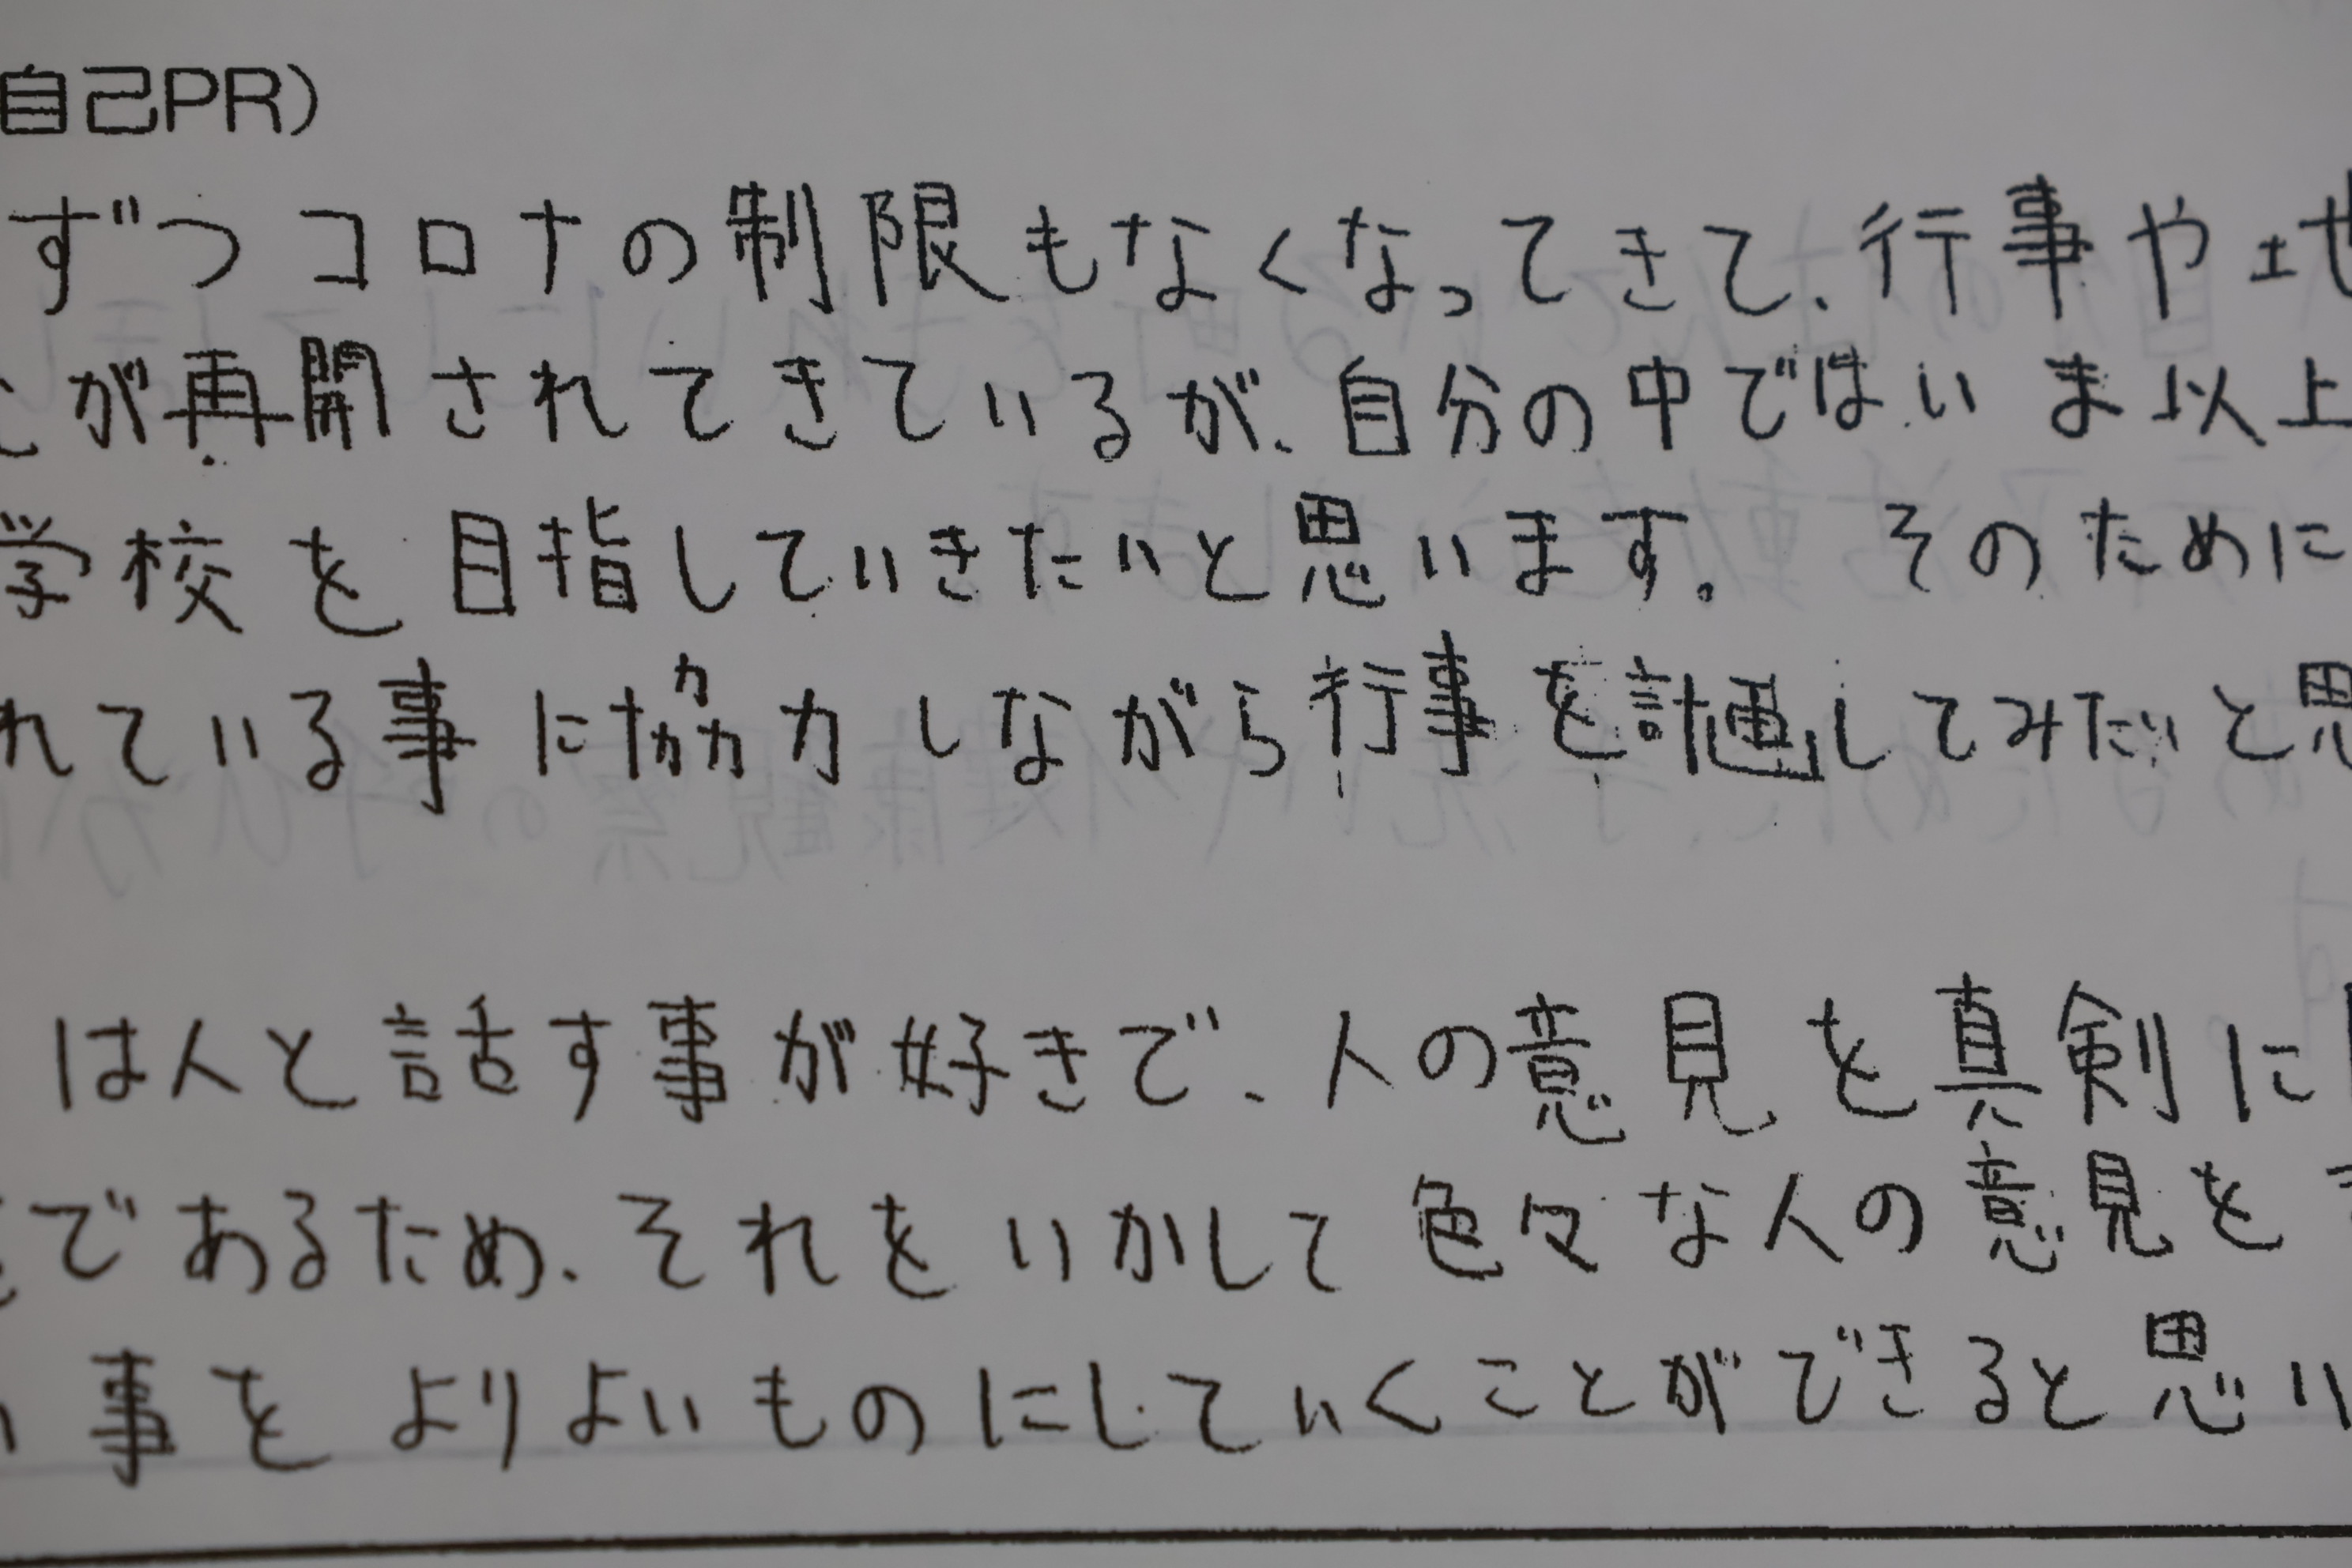 自己PR)
ずつコロナの制限もなくなってきて、行事や地
が再開されてきているが、自分の中ではいま以上
学校を目指していきたいと思います。 そのために
れている事に協力しながら行事を計画してみたいと思
は人と話す事が好きで、人の意見を真剣に
であるため、それをいかして色々な人の意見を
事をよりよいものにしていくことができると思い